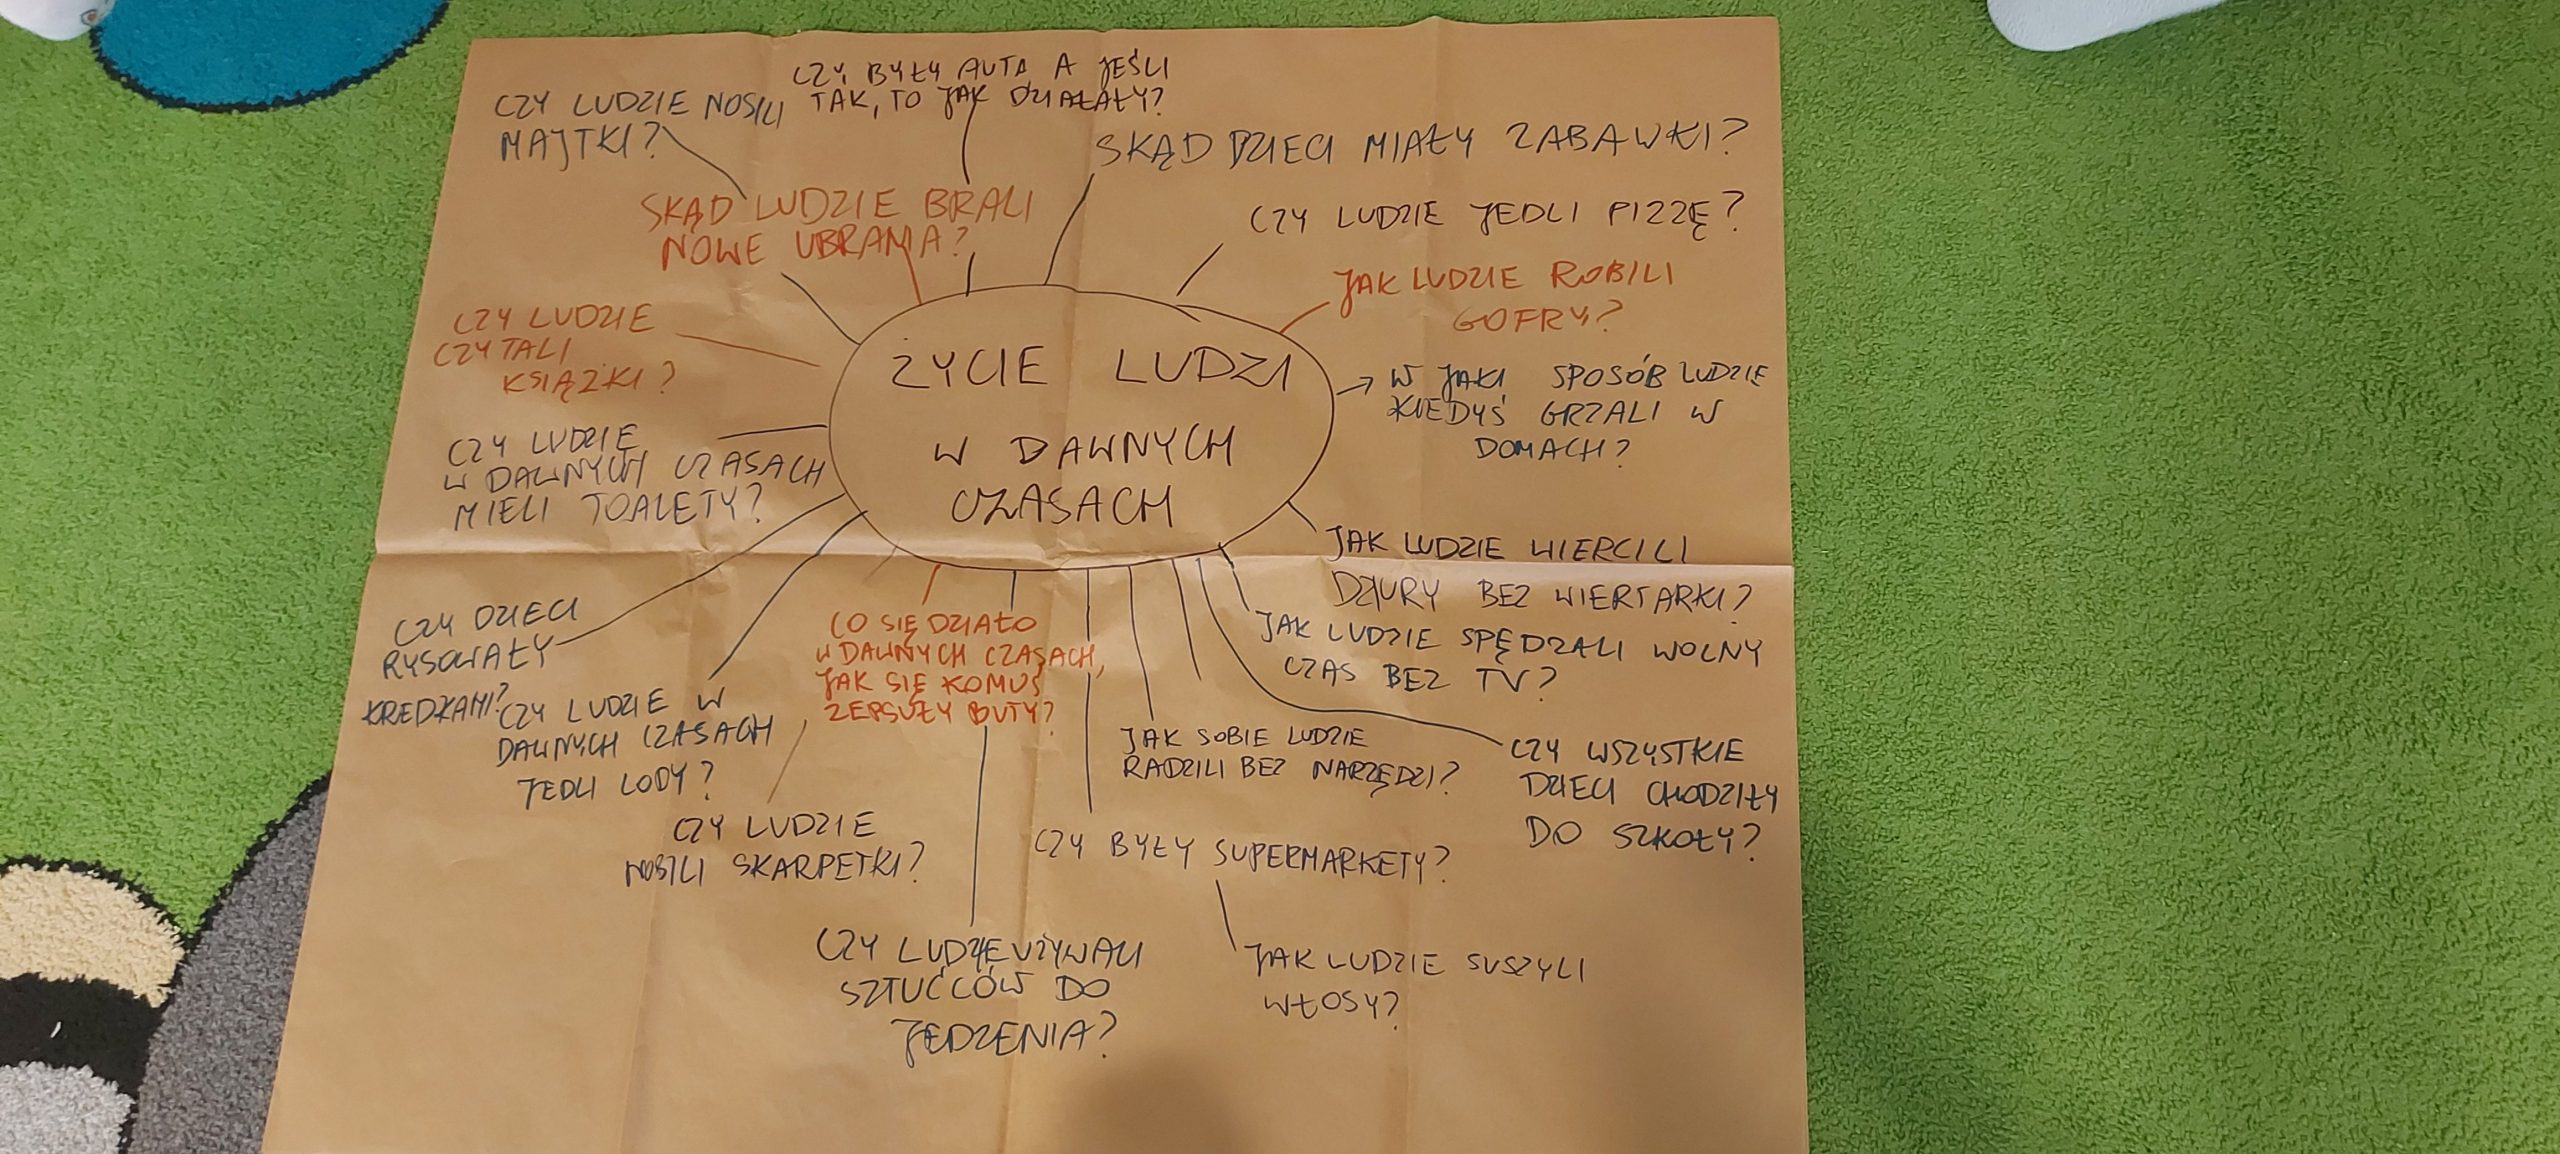 CZY BYŁY AUTA A JEŚLI
TAK, TO JAK DZIAŁAŁY?
CZY LUDZIE NOSILI
MAJTKI?
SKĄD DZIECI MIAŁY ZABAWKI?
SKĄD LUDZIE BRALI
NOWE UBRANIA?
CZY LUDZIE JEDLI PIZZĘ?
JAK LUDZIE ROBILI
GOFRY?
CZY LUDZIE
CZYTALI
KSIĄŻKI?
ŻYCIE LUDZI
W DAWNYCH
CZASACH
W JAKI SPOSÓB LUDZIE
KIEDYŚ GRZALI W
DOMACH?
CZY LUDZIE
W DAWNYCH CZASACH
MIELI TOALETY?
JAK LUDZIE WIERCILI
DZIURY BEZ WIERTARKI?
CZY DZIECI
RYSOWAŁY
KREDKAMI?
CO SIĘ DZIAŁO
W DAWNYCH CZASACH,
JAK SIĘ KOMUŚ
ZEPSUŁY BUTY?
JAK LUDZIE SPĘDZALI WOLNY
CZAS BEZ TV?
CZY LUDZIE W
DAWNYCH CZASACH
JEDLI LODY?
JAK SOBIE LUDZIE
RADZILI BEZ NARZĘDZI?
CZY WSZYSTKIE
DZIECI CHODZIŁY
DO SZKOŁY?
CZY LUDZIE
NOSILI SKARPETKI?
CZY BYŁY SUPERMARKETY?
CZY LUDZIE UŻYWALI
SZTUĆCÓW DO
JEDZENIA?
JAK LUDZIE SUSZYLI
WŁOSY?